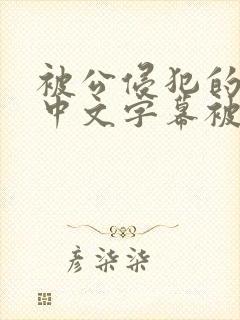 被公侵犯的
中文字幕被
彦柒柒